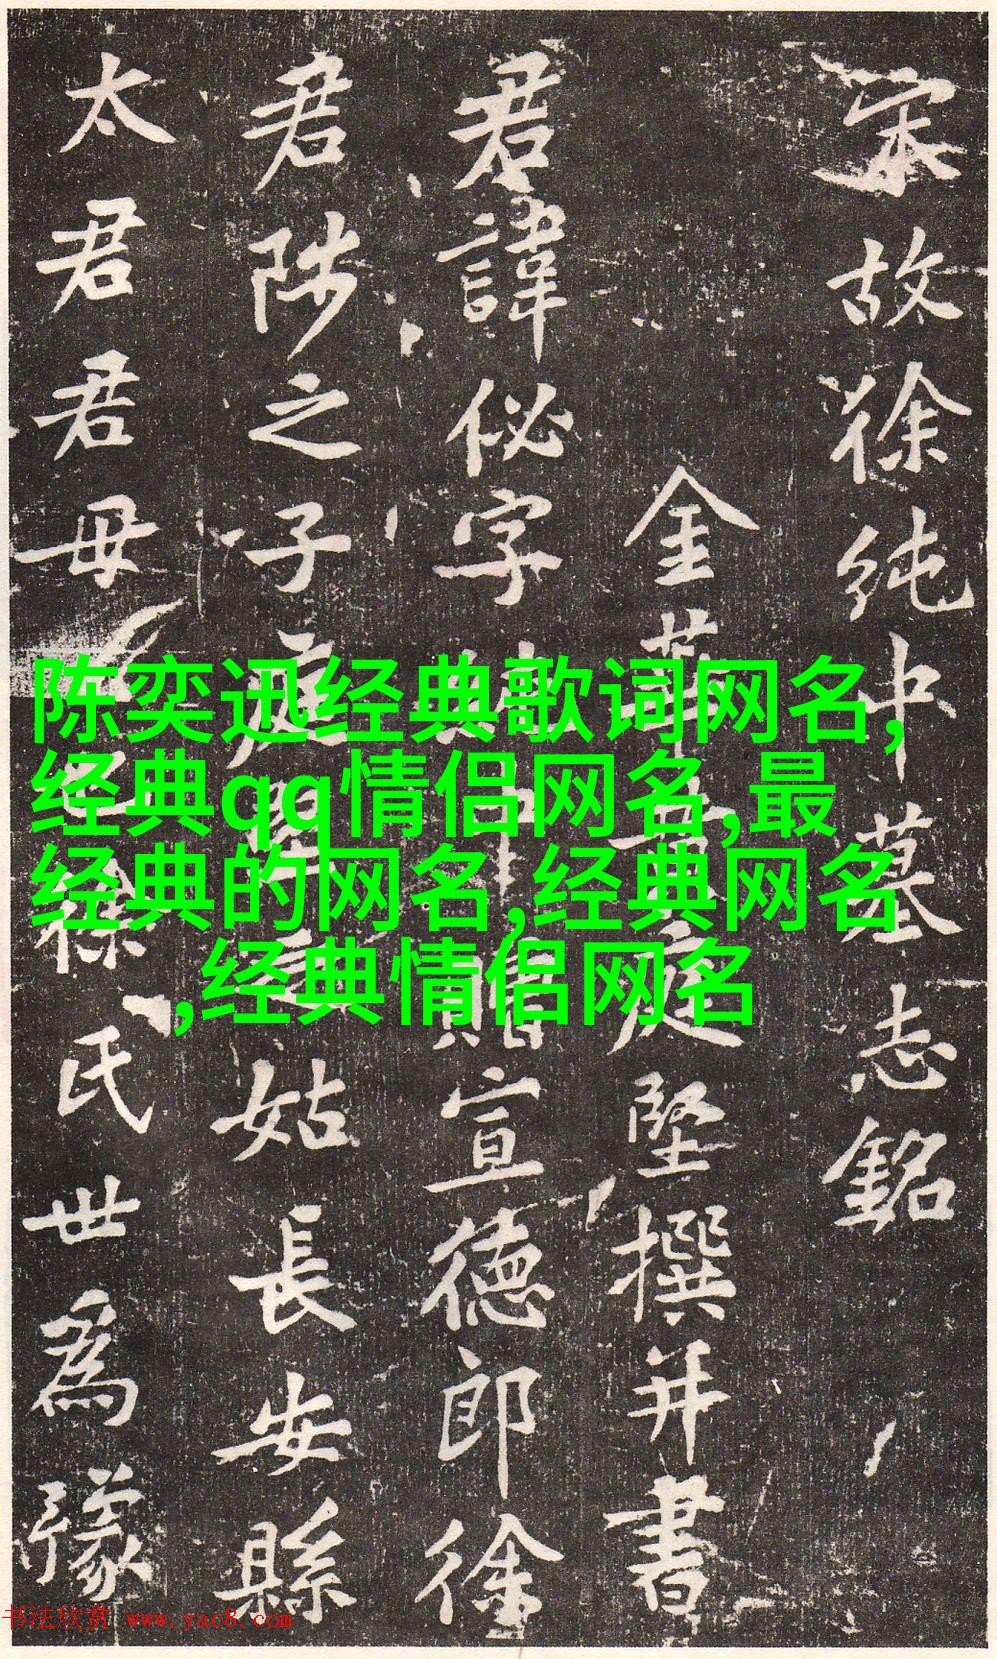 宋故徐純中墓志銘
金華黄庭堅撰并書
君諱佖字中贈宣德郎徐
君陟之子庭堅之姑長安縣
太君君母徐氏世為豫
陈奕迅经典歌词网名,
经典qq情侣网名,最
经典的网名,经典网名
,经典情侣网名
书法欣赏 www.yac8.com